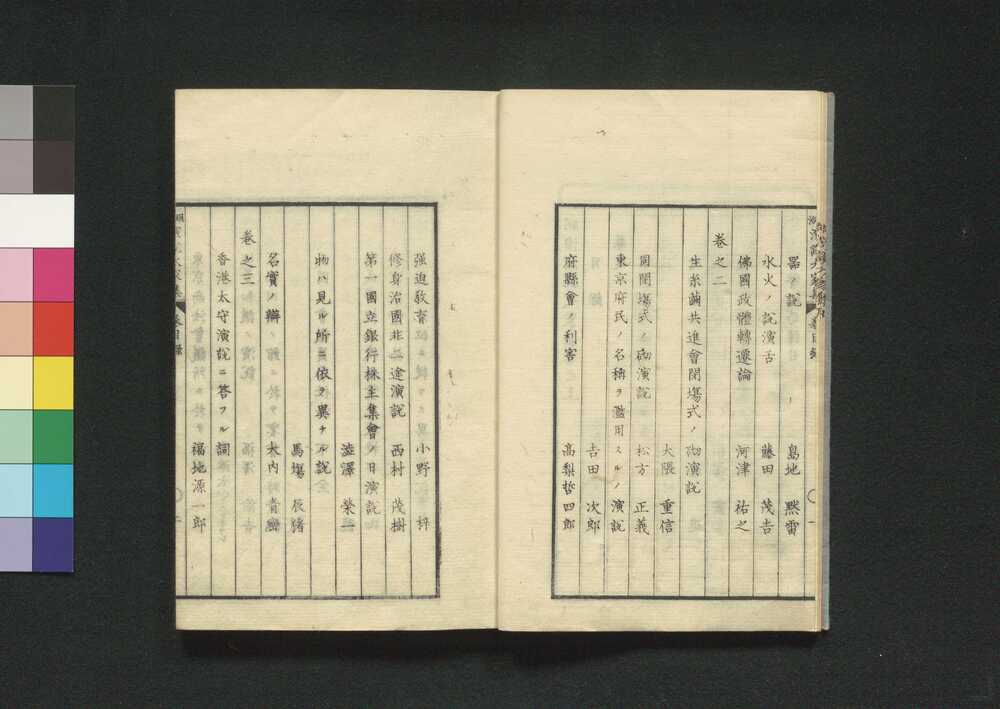 器ノ説 島地 黙雷
水火ノ説演舌 藤田 茂吉
佛國政體轉遷論 河津 祐之
巻之二
生糸繭共進會開塲式ノ砌演説
大隈 重信
同閉塲式ノ砌演説 松方 正義
東京府民ノ名稱ヲ濫用スルノ演説
吉田 次郎
府縣會ノ利害 高梨哲四郎
強迫敎育 小野 梓
修身治國非二途演説 西村 茂樹
第一國立銀行株主集會ノ日演説
澁澤 榮一
物ハ見ル所ニ依テ異ナルノ説
馬塲 辰猪
名實ノ辯 大内 青巒
巻之三
香港太守演説ニ答フル詞
福地源一郎